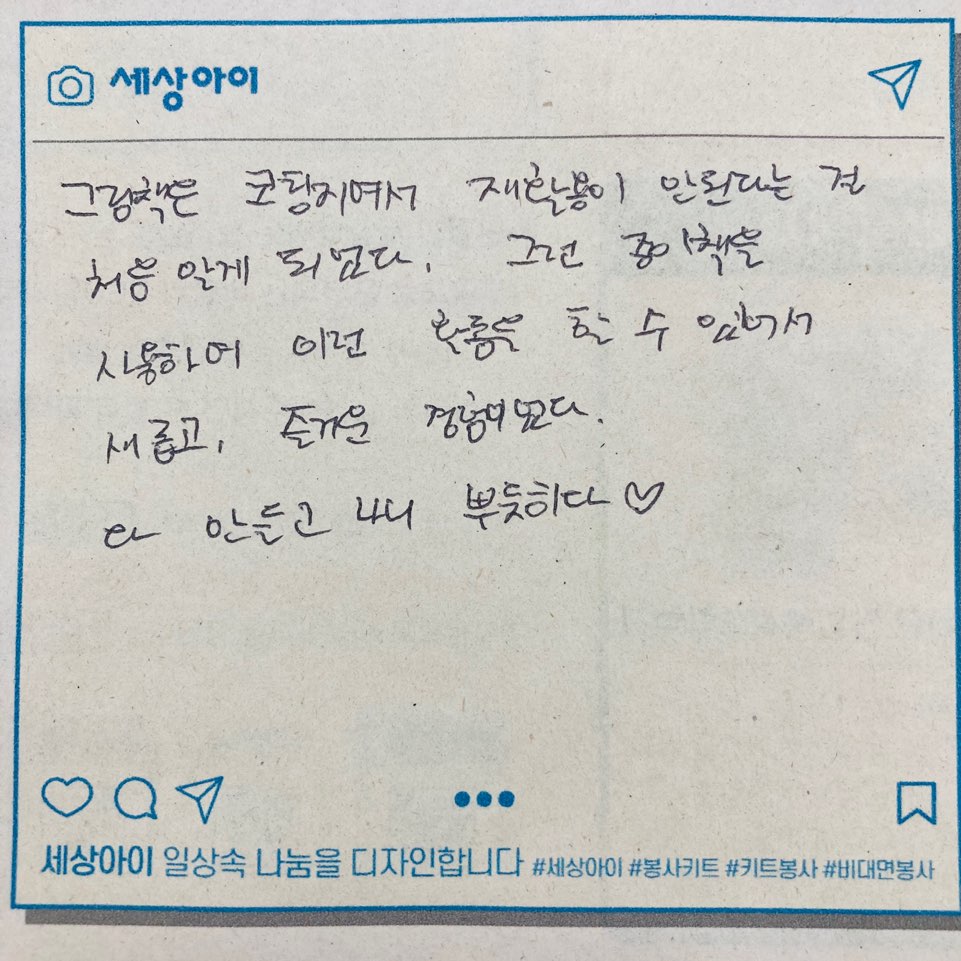 세상아이
그림책은 코팅지여서 재활용이 안된다는 걸
처음 알게 되었다. 그런 종이책을
사용하여 이런 활동을 할 수 있어서
새롭고, 즐거운 경험이었다.
다 만들고 나니 뿌듯하다♡
세상아이 일상속 나눔을 디자인합니다 #세상아이 #봉사키트 #키트봉사 #비대면봉사